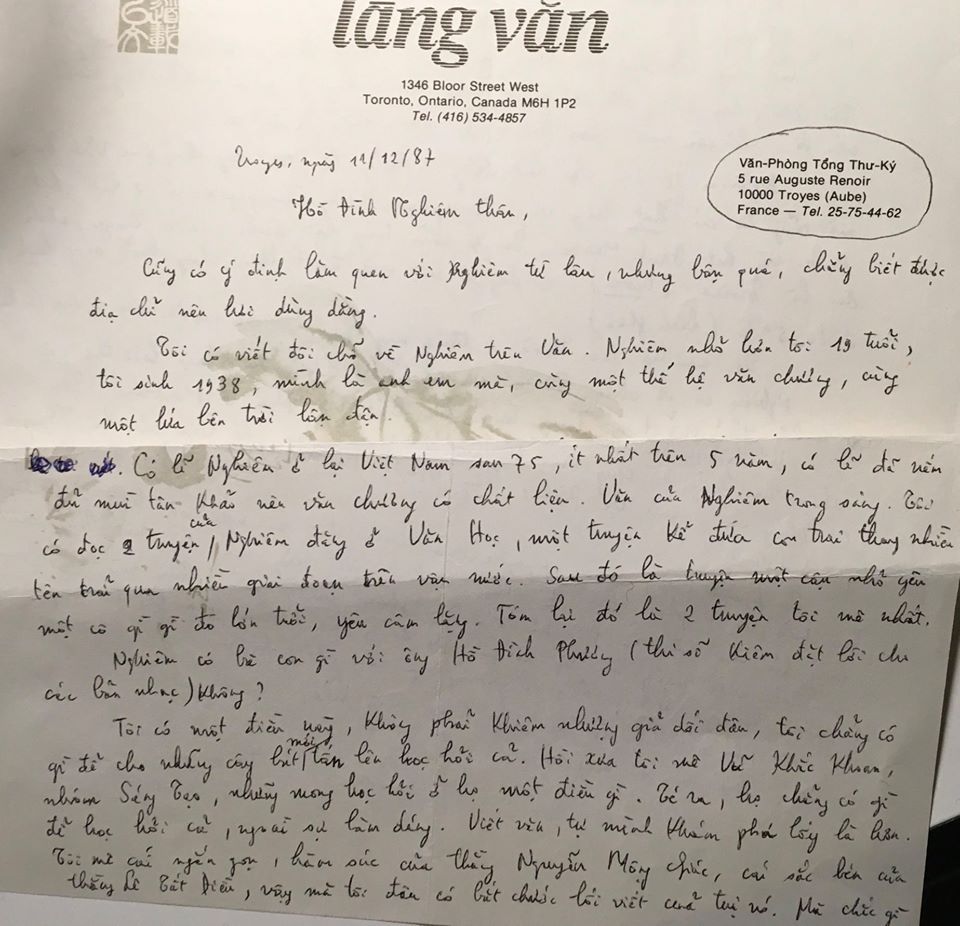 làng văn
1346 Bloor Street West
Toronto, Ontario, Canada M6H 1P2
Tel. (416) 534-4857
Troyes, ngày 11/12/87
Văn-Phòng Tổng Thư-Ký
5 rue Auguste Renoir
10000 Troyes (Aube)
France — Tel. 25-75-44-62
Hồ Đình Nghiêm thân,
Cũng có ý định làm quen với Nghiêm từ lâu, nhưng bận quá, chẳng biết được
địa chỉ nên hơi dùng dằng.
Tôi có viết đôi chỗ về Nghiêm trên Văn. Nghiêm nhỏ hơn tôi 19 tuổi,
tôi sinh 1938, mình là anh em mà, cùng một thế hệ văn chương, cùng
một lứa bên trời lận đận.
Có lẽ Nghiêm ở lại Việt Nam sau 75, ít nhất trên 5 năm, có lẽ đã nếm
đủ mùi tân khổ nên văn chương có chất liệu. Văn của Nghiêm trong sáng. Tôi
có đọc 2 truyện của Nghiêm đăng ở Văn Học, một truyện kể đứa con trai thay nhiều
tên trải qua nhiều giai đoạn trên vận nước. Sau đó là truyện một cậu nhỏ yêu
một cô gì gì đó lớn trổi, yêu câm lặng. Tóm lại đó là 2 truyện tôi mê nhất.
Nghiêm có bà con gì với ông Hồ Đình Phương (thi sĩ kiêm đặt lời cho
các bản nhạc) không?
Tôi có một điều này, không phải khiêm nhượng giả dối đâu, tôi chẳng có
gì để cho những cây bút mới tấn lên học hỏi cả. Hồi xưa tôi mê Vũ Khắc Khoan,
nhóm Sáng Tạo, những mong học hỏi ở họ một điều gì. Té ra, họ chẳng có gì
để học hỏi cả, ngoài sự làm dáng. Viết văn, tự mình khám phá lấy là hơn.
Tôi mê cái ngắn gọn, hàm súc của thằng Nguyễn Mộng Giác, cái sắc bén của
thằng Lê Tất Điều, vậy mà tôi đâu có bắt chước lối viết của tụi nó. Mà chắc gì